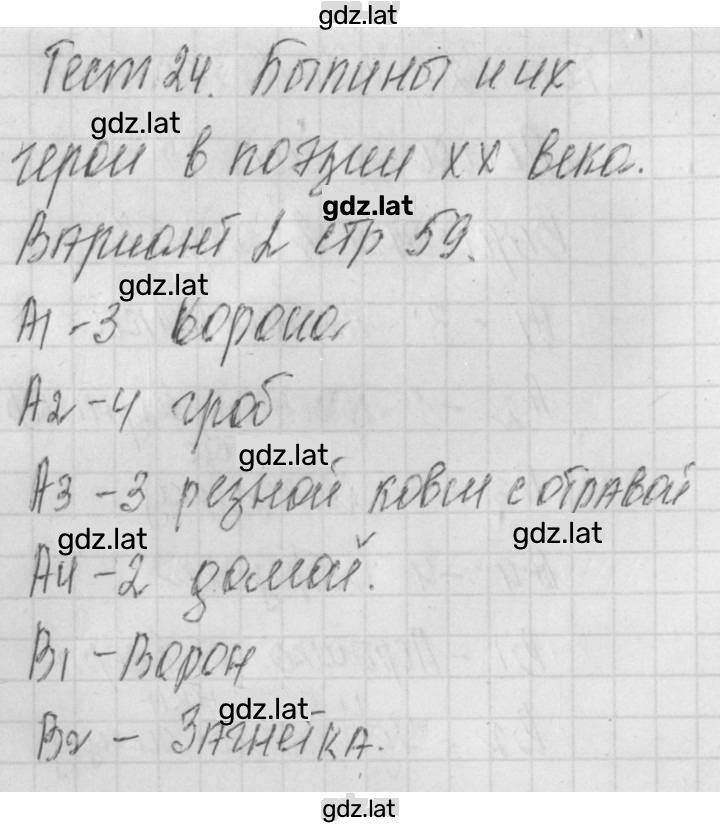 gdz.lat
Тест 24. Былины и их
gdz.lat
герои в поэзии XX века.
gdz.lat
Вариант 2 стр 59.
gdz.lat
А1 - 3 Ворона
А2 - 4 гроб
gdz.lat
А3 - 3 резной ковш с отравой
gdz.lat gdz.lat
А4 - 2 домой.
В1 - Ворон
gdz.lat
В2 - Загнетка.
gdz.lat